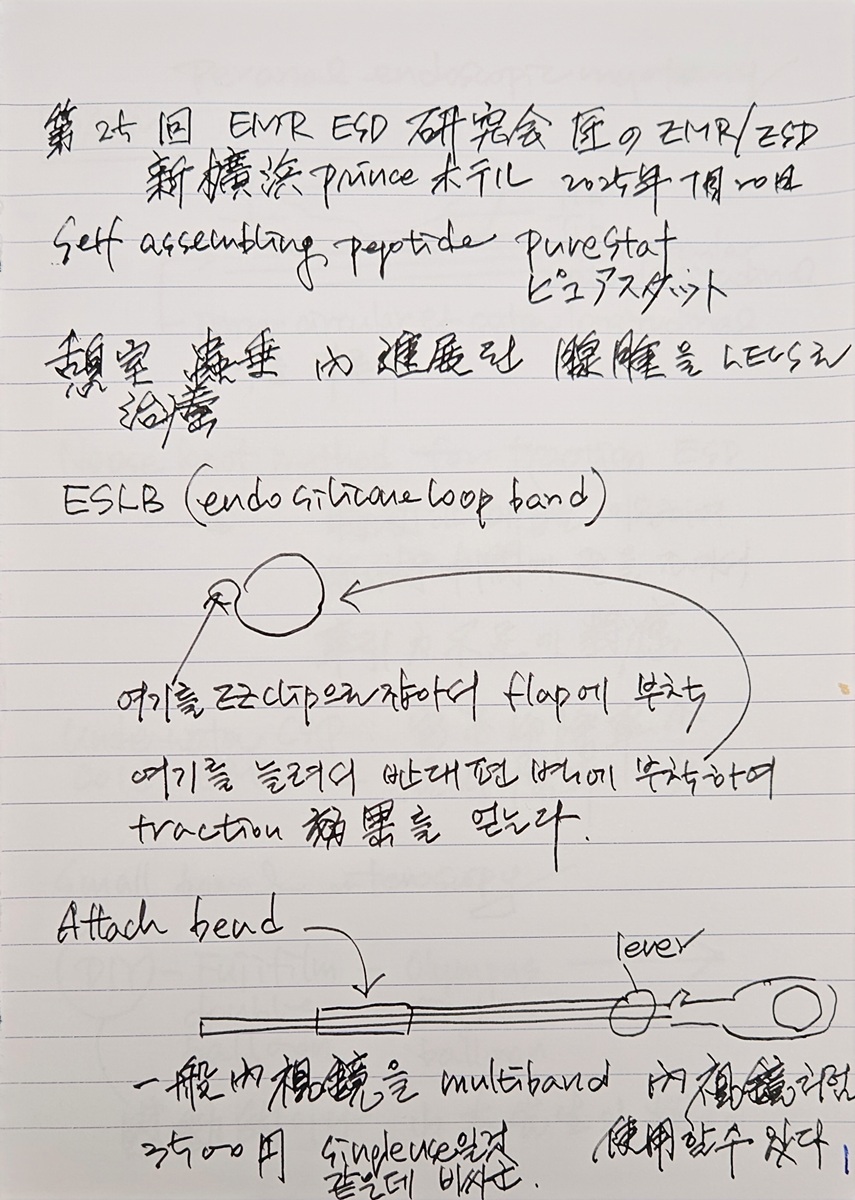 第25回 EMR ESD 研究会 匠の EMR/ESD
新橫浜 prince ホテル 2025年 7月 20日
Self assembling peptide purestat
ピュアスタット
憩室 蟲垂 內 進展된 腺腫을 LECS로
治療
ESLB (endo silicone loop band)
여기를 EZ clip으로 잡아서 flap에 부착
여기를 늘려서 반대편 벽에 부착하여
traction 效果를 얻는다.
Attach bend
lever
一般 內視鏡을 multiband 內視鏡처럼
3500円 single use일것 使用할 수 있다
같은데 비싸군.